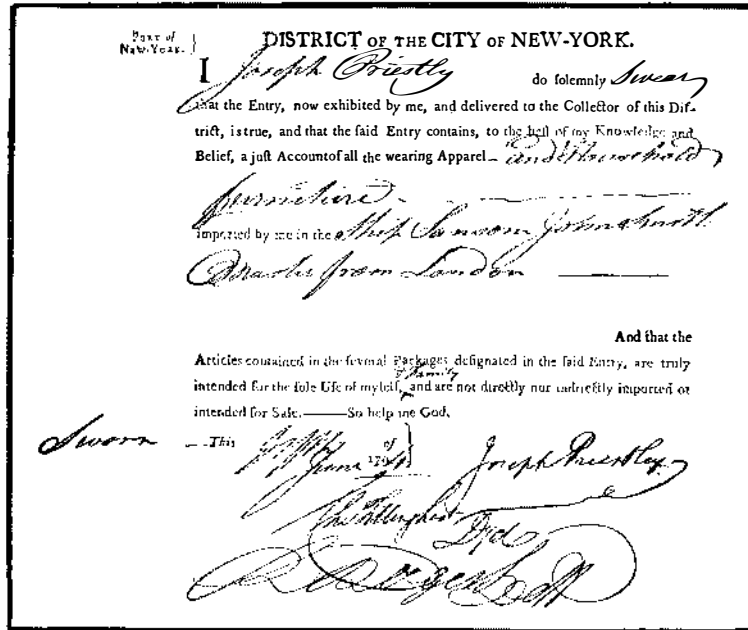 Port of
New-York.
DISTRICT OF THE CITY OF NEW-YORK.
I Joseph Priestly do solemnly Swear
that the Entry, now exhibited by me, and delivered to the Collector of this Dis-
trict, is true, and that the said Entry contains, to the best of my Knowledge and
Belief, a just Account of all the wearing Apparel and Household
furniture
imported by me in the Ship Sansom
Master from London
And that the
Articles contained in the several Packages designated in the said Entry, are truly
& Family
intended for the sole Use of myself, and are not directly nor indirectly imported or
intended for Sale.——So help me God.
Sworn —This of
June 179 Joseph Priestley